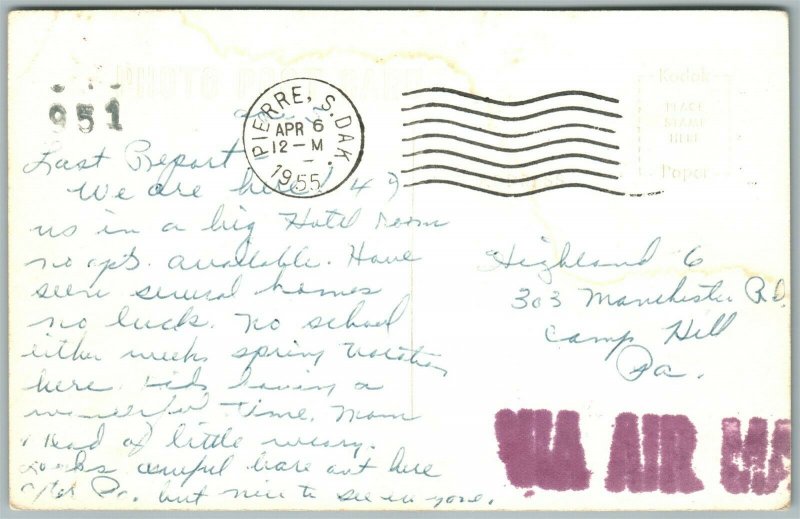 PHOTO POST CARD
951
PIERRE, S. DAK.
APR 6
12-M
1955
Kodak
PLACE
STAMP
HERE
Paper
Last Report
We are here! 4 of
us in a big Hotel room
no apts. available. Have
seen several homes
no luck. No school
either weeks spring vacation
here. Kids having a
wonderful time. Mom
Dad a little weary.
Looks awful bare out here
after Pa. but nice to see every one.
Highland 6
303 Manchester Rd.
Camp Hill
Pa.
VIA AIR MA